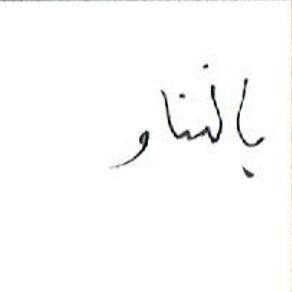 بالهنا و